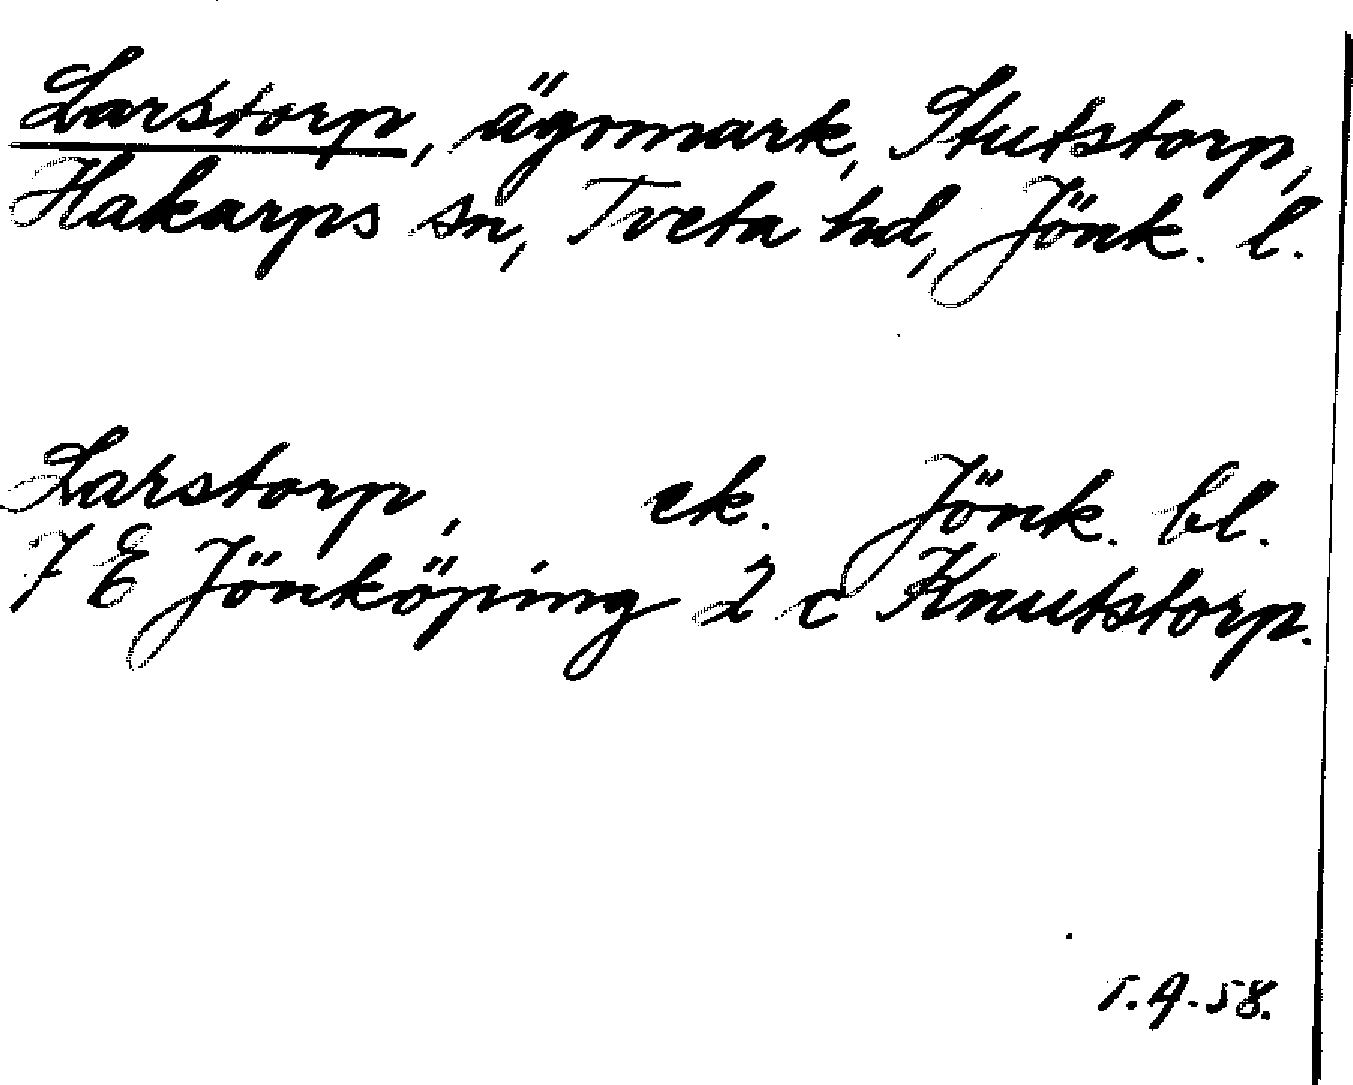 Larstorp, ägomark, Stutstorp,
Hakarps sn, Tveta hd, Jönk. l.
Larstorp, ek. Jönk. bl.
7 E Jönköping 2 c Knutstorp.
T.A.-58.